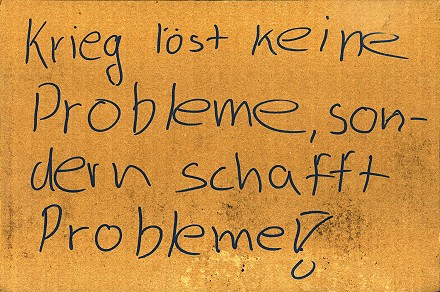 Krieg löst keine
Probleme, son-
dern schafft
Probleme!